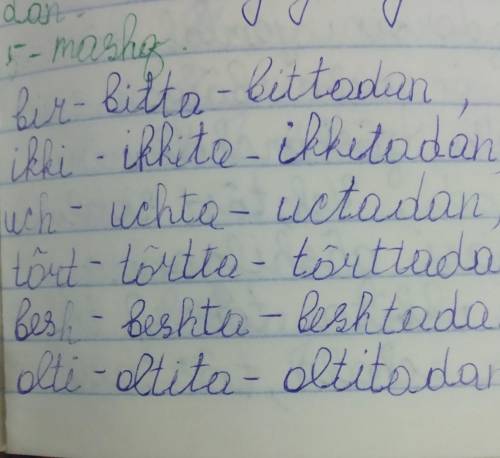 dan.
5-mashq.
bir - bitta - bittadan,
ikki - ikkita - ikkitadan,
uch - uchta - uctadan,
tôrt - tôrtta - tôrttada
besh - beshta - beshtada
olti - oltita - oltitadan